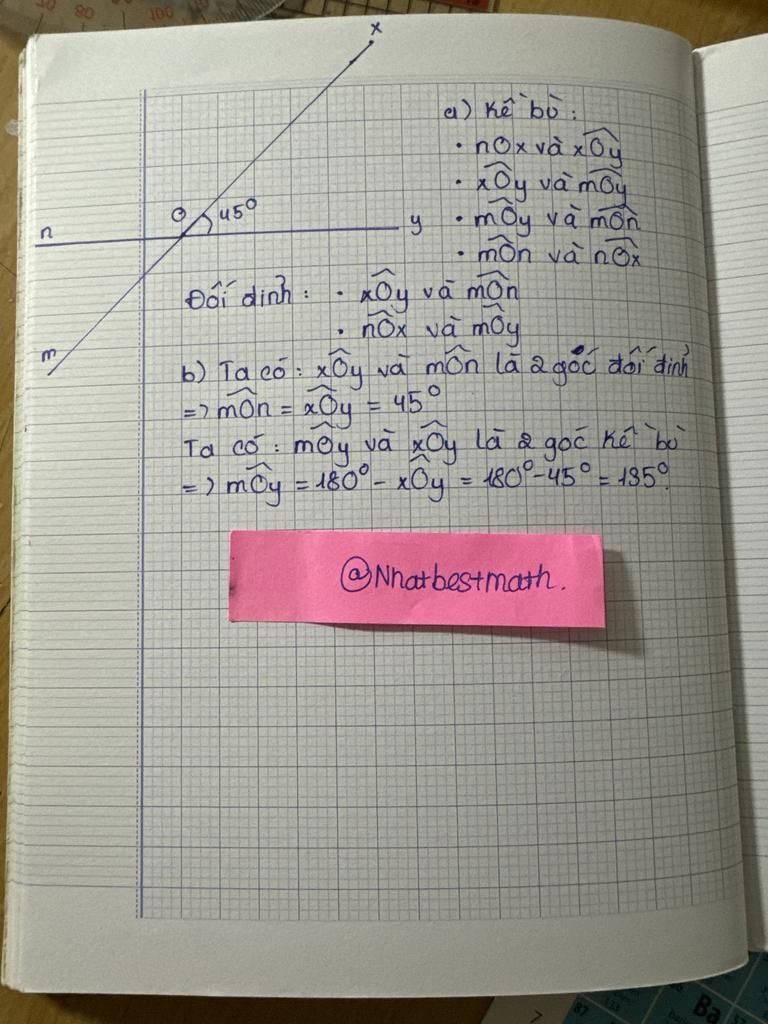 x
a) Kề bù:
• nOx và xOy
• xOy và mOy
O 45°
n
y
• mOy và mOn
• mOn và nOx
Đối đỉnh: • xOy và mOn
• nOx và mOy
m
b) Ta có: xOy và mOn là 2 góc đối đỉnh
=> mOn = xOy = 45°
Ta có: mOy và xOy là 2 góc kề bù
=> mOy = 180° - xOy = 180° - 45° = 135°.
@Nhatbestmath.
70 80 100
7
87
Ba